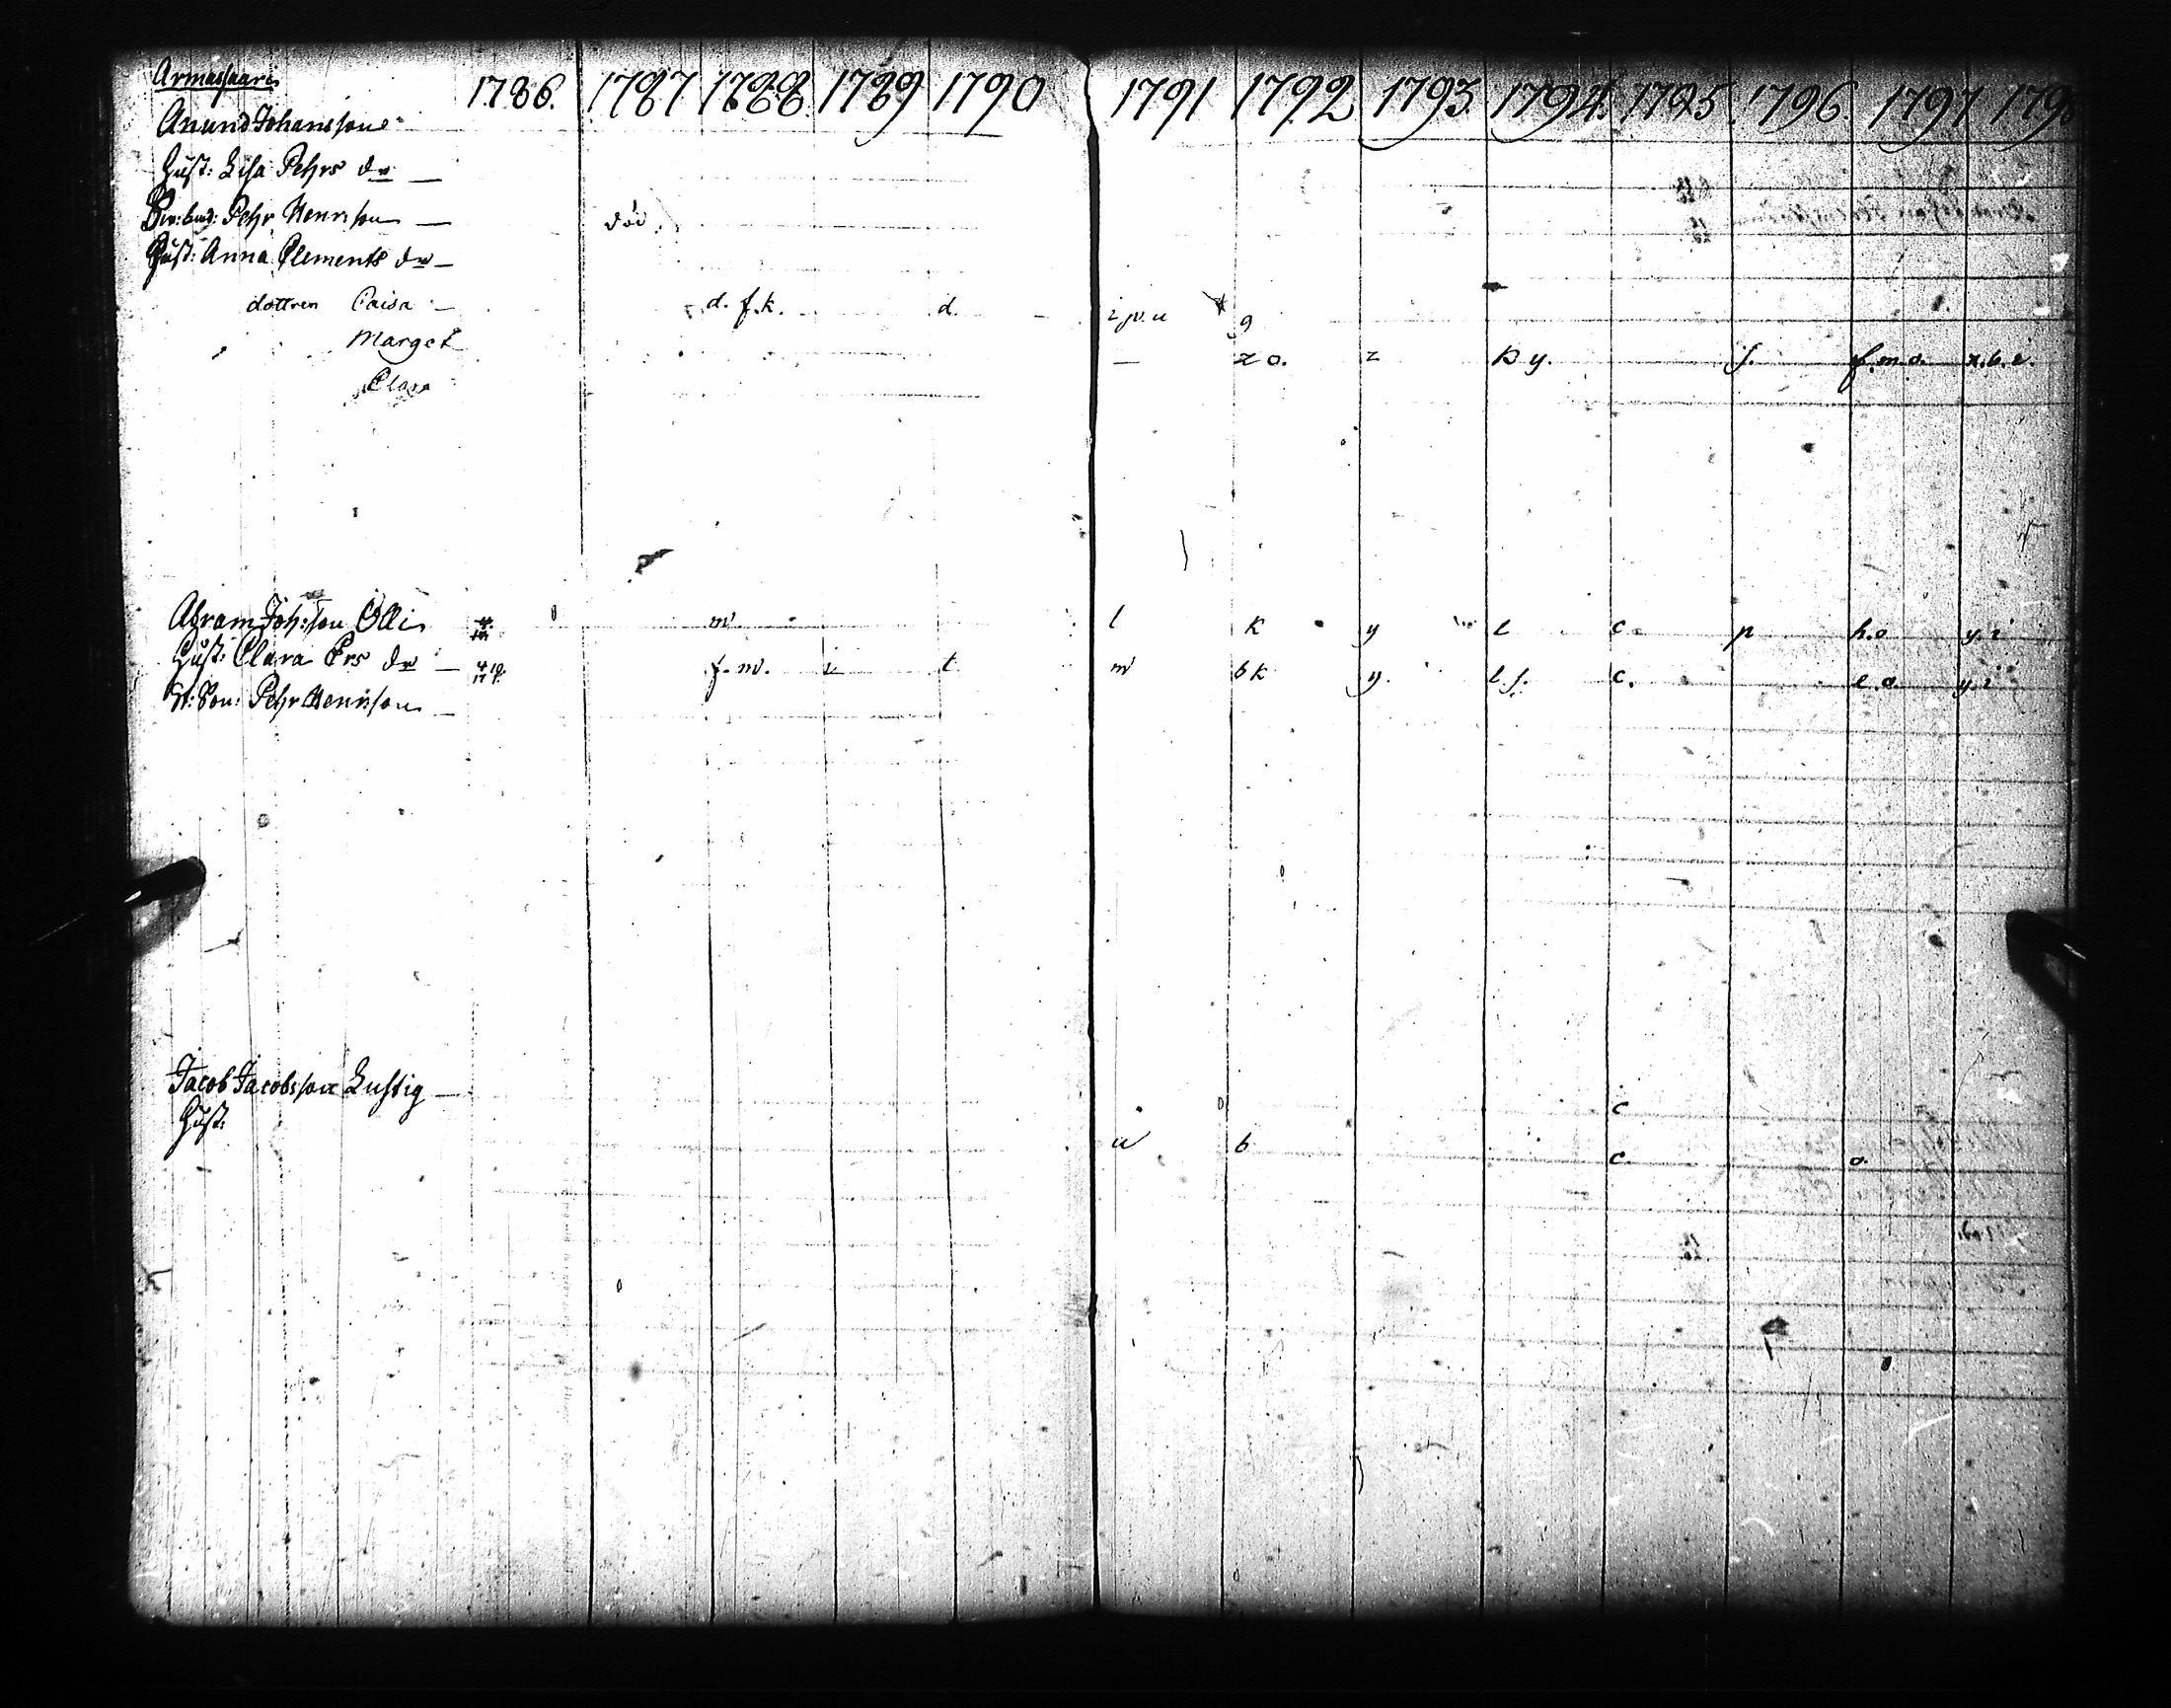 Armassaari
1786. 1787 1788 1789 1790 1791 1792 1793 1794. 1795 1796. 1797 1798
Anund Johansson
Hust: Lisa Pehrs dr —
Pehr Henrisson — död.
Hust: Anna Clements dr —
dottren Caisa — d. f. k. d. g
Marget — z o. z k y. f. f. m. o. x. b. e.
Clara
Abram Joh:son Olli m. l k y l c. p h. o y. i
Hust: Clara Ers dr — f. m. t m b k y. l. f. c. e. o. y. i
Pehr Henrisson —
Jacob Jacobsson Lustig — c
Hust: u b c. o.